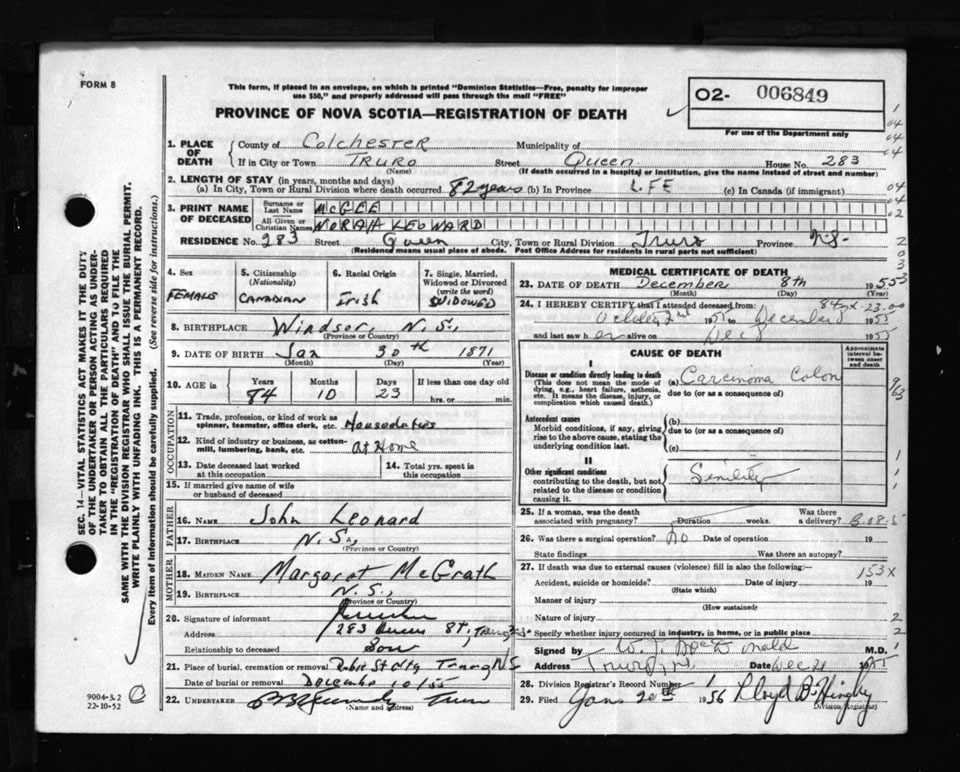 FORM 8
This form, if placed in an envelope, on which is printed "Dominion Statistics—Free, penalty for improper
use $50," and properly addressed will pass through the mail "FREE"
02- 006849
For use of the Department only
PROVINCE OF NOVA SCOTIA—REGISTRATION OF DEATH
1. PLACE OF DEATH
County of Colchester Municipality of
If in City or Town TRURO Street Queen House No. 283
(Name) (If death occurred in a hospital or institution, give the name instead of street and number)
2. LENGTH OF STAY (in years, months and days)
(a) In City, Town or Rural Division where death occurred 82 years (b) In Province LIFE (c) In Canada (if immigrant)
3. PRINT NAME OF DECEASED
Surname or Last Name McGEE
All Given or Christian Names NORAH LEOWARD
RESIDENCE No. 283 Street Queen City, Town or Rural Division Truro Province N.S.
(Residence means usual place of abode. Post Office Address for residents in rural parts not sufficient)
4. Sex FEMALE
5. Citizenship (Nationality) CANADIAN
6. Racial Origin Irish
7. Single, Married, Widowed or Divorced (write the word) WIDOWED
8. BIRTHPLACE Windsor, N.S.,
(Province or Country)
9. DATE OF BIRTH Jan 30th 1871
(Month) (Day) (Year)
10. AGE in Years 84 Months 10 Days 23 If less than one day old hrs. or min.
OCCUPATION
11. Trade, profession, or kind of work as spinner, teamster, office clerk, etc. Houseduties
12. Kind of industry or business, as cotton-mill, lumbering, bank, etc. At Home
13. Date deceased last worked at this occupation
14. Total yrs. spent in this occupation
15. If married give name of wife or husband of deceased
FATHER
16. NAME John Leonard
17. BIRTHPLACE N.S.,
(Province or Country)
MOTHER
18. MAIDEN NAME Margaret McGrath
19. BIRTHPLACE N.S.,
(Province or Country)
20. Signature of informant
Address 283 Queen St, Truro N.S.
Relationship to deceased Son
21. Place of burial, cremation or removal Robie St Truro N.S
Date of burial or removal December 10/55
22. UNDERTAKER Truro
(Name and Address)
MEDICAL CERTIFICATE OF DEATH
23. DATE OF DEATH December 8th 1955
(Month) (Day) (Year)
24. I HEREBY CERTIFY that I attended deceased from:
October 2nd 1955 to December 1955
and last saw her alive on Dec 8 1955
CAUSE OF DEATH
Approximate interval between onset and death
I
Disease or condition directly leading to death
(This does not mean the mode of dying, e.g., heart failure, asthenia, etc. It means the disease, injury, or complication which caused death.)
(a) Carcinoma Colon
due to (or as a consequence of)
Antecedent causes
Morbid conditions, if any, giving rise to the above cause, stating the underlying condition last.
(b)
due to (or as a consequence of)
(c)
II
Other significant conditions
contributing to the death, but not related to the disease or condition causing it.
Senility
25. If a woman, was the death associated with pregnancy? Duration weeks. Was there a delivery?
26. Was there a surgical operation? No Date of operation 19
State findings Was there an autopsy?
27. If death was due to external causes (violence) fill in also the following:—
153X
Accident, suicide or homicide? Date of injury 19
(State which)
Manner of injury
(How sustained)
Nature of injury
Specify whether injury occurred in industry, in home, or in public place
Signed by M.D.
Address Truro, N.S. Date Dec 21 1955
28. Division Registrar's Record Number 1
29. Filed Jan 20th 1956 Lloyd B.
Division Registrar
SEC. 14—VITAL STATISTICS ACT MAKES IT THE DUTY
OF THE UNDERTAKER OR PERSON ACTING AS UNDER-
TAKER TO OBTAIN ALL THE PARTICULARS REQUIRED
IN THE "REGISTRATION OF DEATH" AND TO FILE THE
SAME WITH THE DIVISION REGISTRAR WHO SHALL ISSUE THE BURIAL PERMIT.
WRITE PLAINLY WITH UNFADING INK. THIS IS A PERMANENT RECORD.
Every item of information should be carefully supplied. (See reverse side for instructions.)
9004-3.2
22-10-52